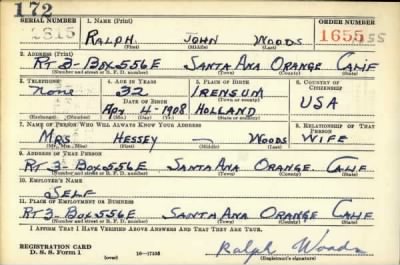 172
SERIAL NUMBER 1. NAME (Print) ORDER NUMBER
2815 RALPH JOHN WOODS 1655 1655
(First) (Middle) (Last)
2. ADDRESS (Print)
RT 3-BOX 556E SANTA ANA ORANGE CALIF
(Number and street or R. F. D. number) (Town) (County) (State)
3. TELEPHONE 4. AGE IN YEARS 5. PLACE OF BIRTH 6. COUNTRY OF CITIZENSHIP
None 32 IRENSUM
DATE OF BIRTH (Town or county)
Apr 4-1908 HOLLAND USA
(Exchange) (Number) (Mo.) (Day) (Yr.) (State or country)
7. NAME OF PERSON WHO WILL ALWAYS KNOW YOUR ADDRESS 8. RELATIONSHIP OF THAT PERSON
MRS HESSEY — WOODS WIFE
(Mr., Mrs., Miss) (First) (Middle) (Last)
9. ADDRESS OF THAT PERSON
RT 3-BOX 556E SANTA ANA ORANGE. CALIF
(Number and street or R. F. D. number) (Town) (County) (State)
10. EMPLOYER'S NAME
SELF
11. PLACE OF EMPLOYMENT OR BUSINESS
RT 3-BOX 556E SANTA ANA ORANGE CALIF
(Number and street or R. F. D. number) (Town) (County) (State)
I AFFIRM THAT I HAVE VERIFIED ABOVE ANSWERS AND THAT THEY ARE TRUE.
REGISTRATION CARD
D. S. S. FORM 1 (over) 16—17105 Ralph Woods
(Registrant's signature)